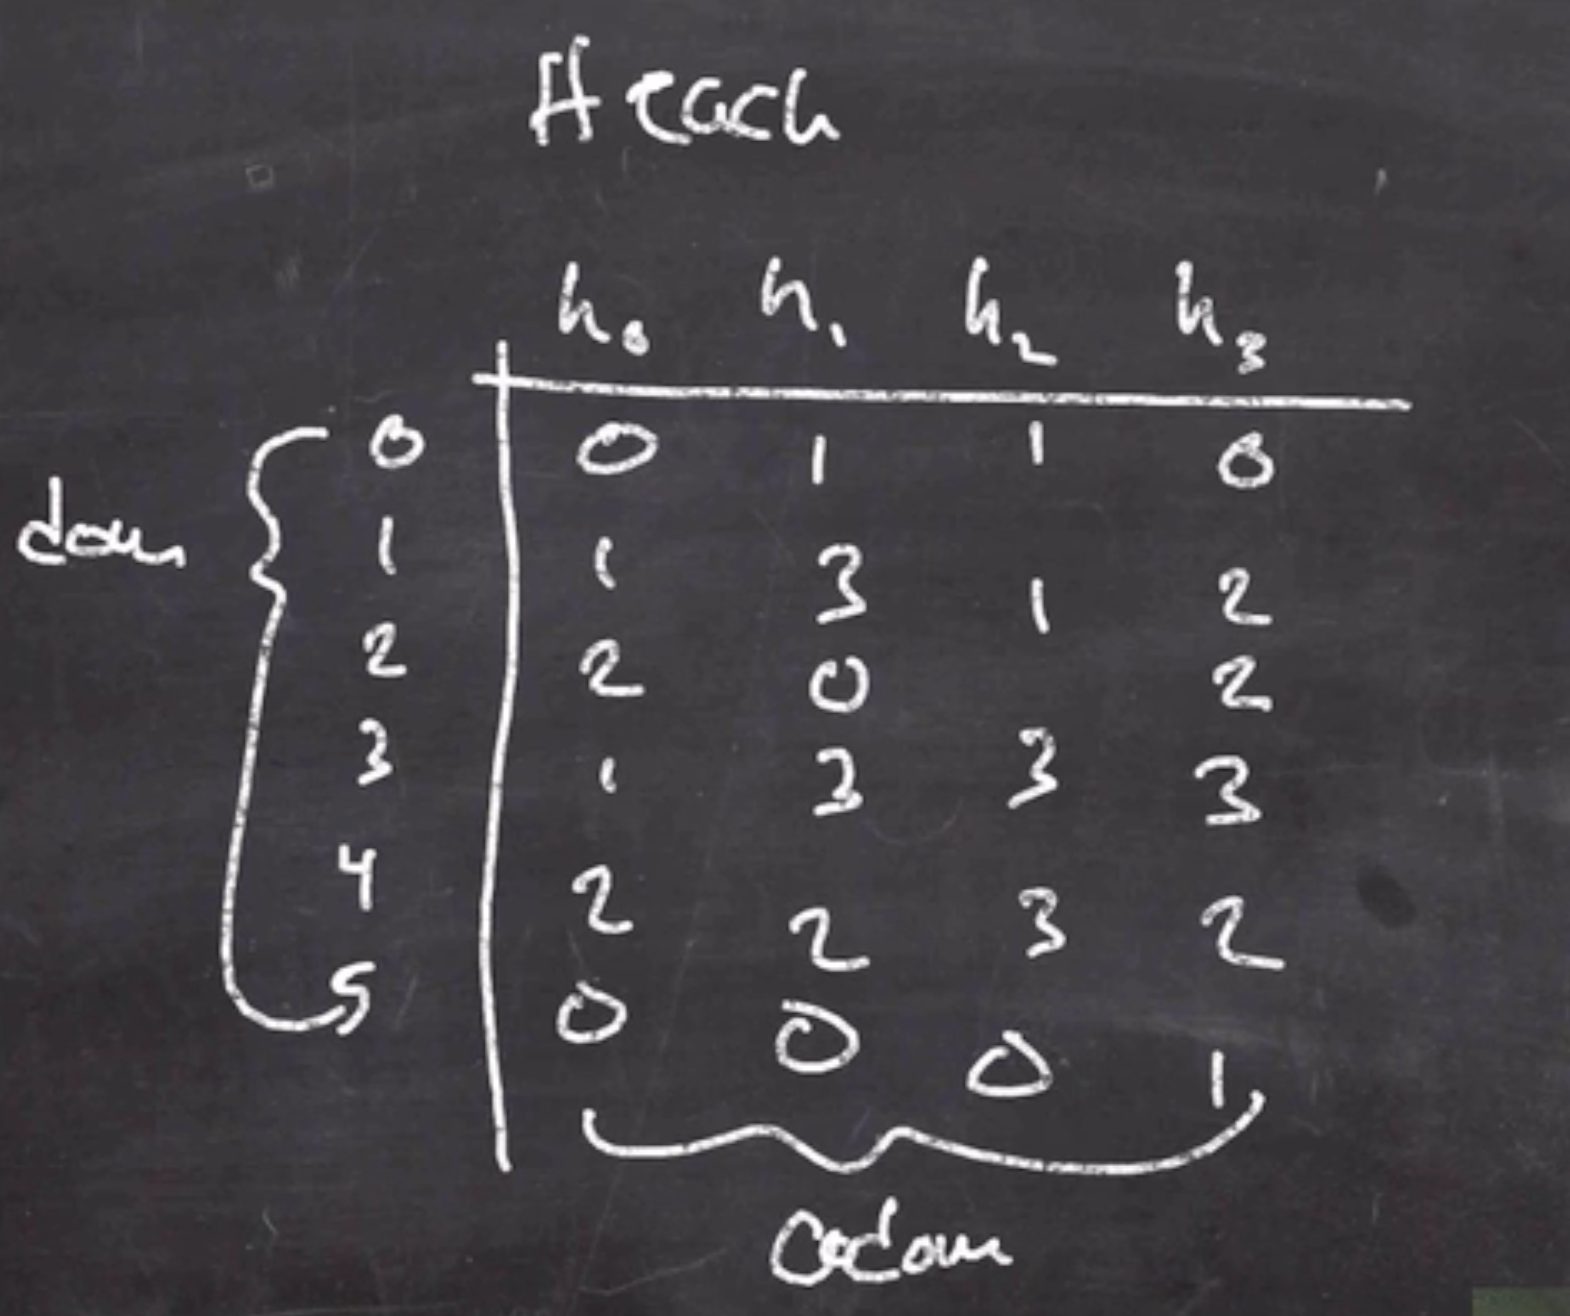 A each
h₀ h₁ h₂ h₃
0 0 1 1 0
dom
1 1 3 1 2
2 2 0 2
3 1 3 3 3
4 2 2 3 2
5 0 0 0 1
Codom